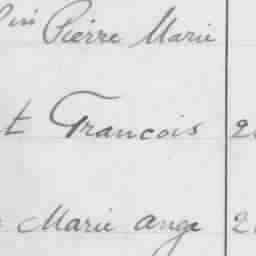 Pierre Marie
t Francois 2
Marie ange 2